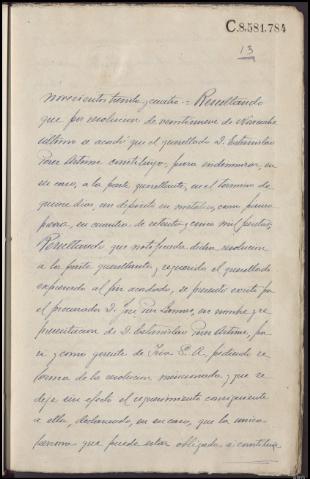 C.8.581.784
13
novecientos treinta y cuatro = Resultando
que por resolucion de veintinueve de Noviembre
último se acordó que el querellado D. Estanislao
Perez Artime constituya, para indemnizar, en
su caso, a la parte querellante, en el termino de
quince dias, un depósito en metalico, como fianza
para, en cuantia de setenta y cinco mil pesetas,
Resultando que notificada dicha resolucion
a la parte querellante y requerido el querellado
expresado al fin acordado, se presentó escrito por
el procurador D. José Perez en nombre y re
presentacion de D. Estanislao Perez Artime, por
si y como gerente de S. A. pidiendo re
forma de la resolucion mencionada y que se
deje sin efecto el requerimiento consiguiente
a ella, declarando, en su caso, que la unica
persona que puede estar obligada a constituir